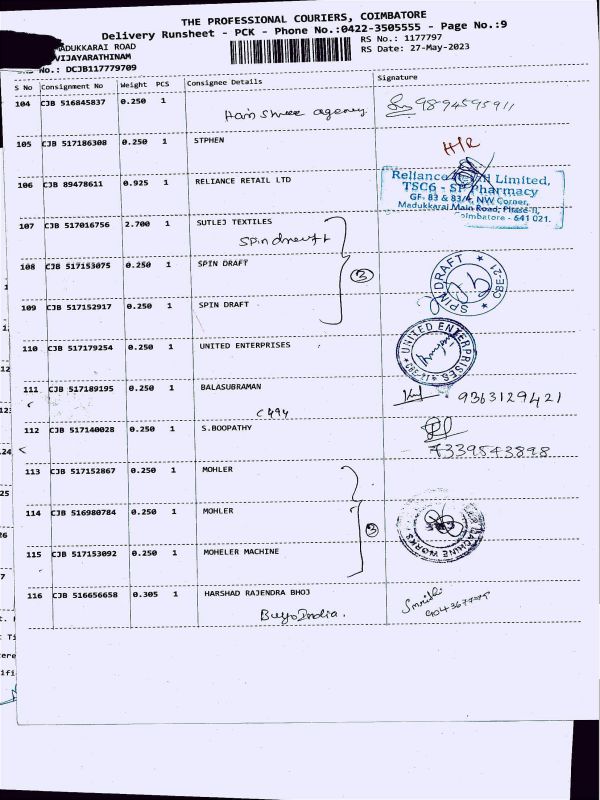 THE PROFESSIONAL COURIERS, COIMBATORE
Delivery Runsheet - PCK - Phone No.:0422-3505555 - Page No.:9
MADUKKARAI ROAD
RS No.: 1177797
VIJAYARATHINAM
RS Date: 27-May-2023
No.: DCJB117779709
S No Consignment No Weight PCS Consignee Details Signature
104 CJB 516845837 0.250 1
Hari shree agency 9894595911
105 CJB 517186308 0.250 1 STPHEN
H/R
106 CJB 89478611 0.925 1 RELIANCE RETAIL LTD
Reliance Retail Limited,
TSC6 - SP Pharmacy
GF. 83 & 83/4, NW Corner,
Madukkarai Main Road, Phase-II,
Coimbatore - 641 021.
107 CJB 517016756 2.700 1 SUTLEJ TEXTILES
108 CJB 517153075 0.250 1 SPIN DRAFT
3
SPIN DRAFT CBE-21
109 CJB 517152917 0.250 1 SPIN DRAFT
110 CJB 517179254 0.250 1 UNITED ENTERPRISES
UNITED ENTERPRISES
111 CJB 517189195 0.250 1 BALASUBRAMAN
9363129421
C494
112 CJB 517140028 0.250 1 S.BOOPATHY
7339543898
113 CJB 517152867 0.250 1 MOHLER
114 CJB 516980784 0.250 1 MOHLER
3
MACHINE WORKS
115 CJB 517153092 0.250 1 MOHELER MACHINE
116 CJB 516656658 0.305 1 HARSHAD RAJENDRA BHOJ
BuyoIndia.